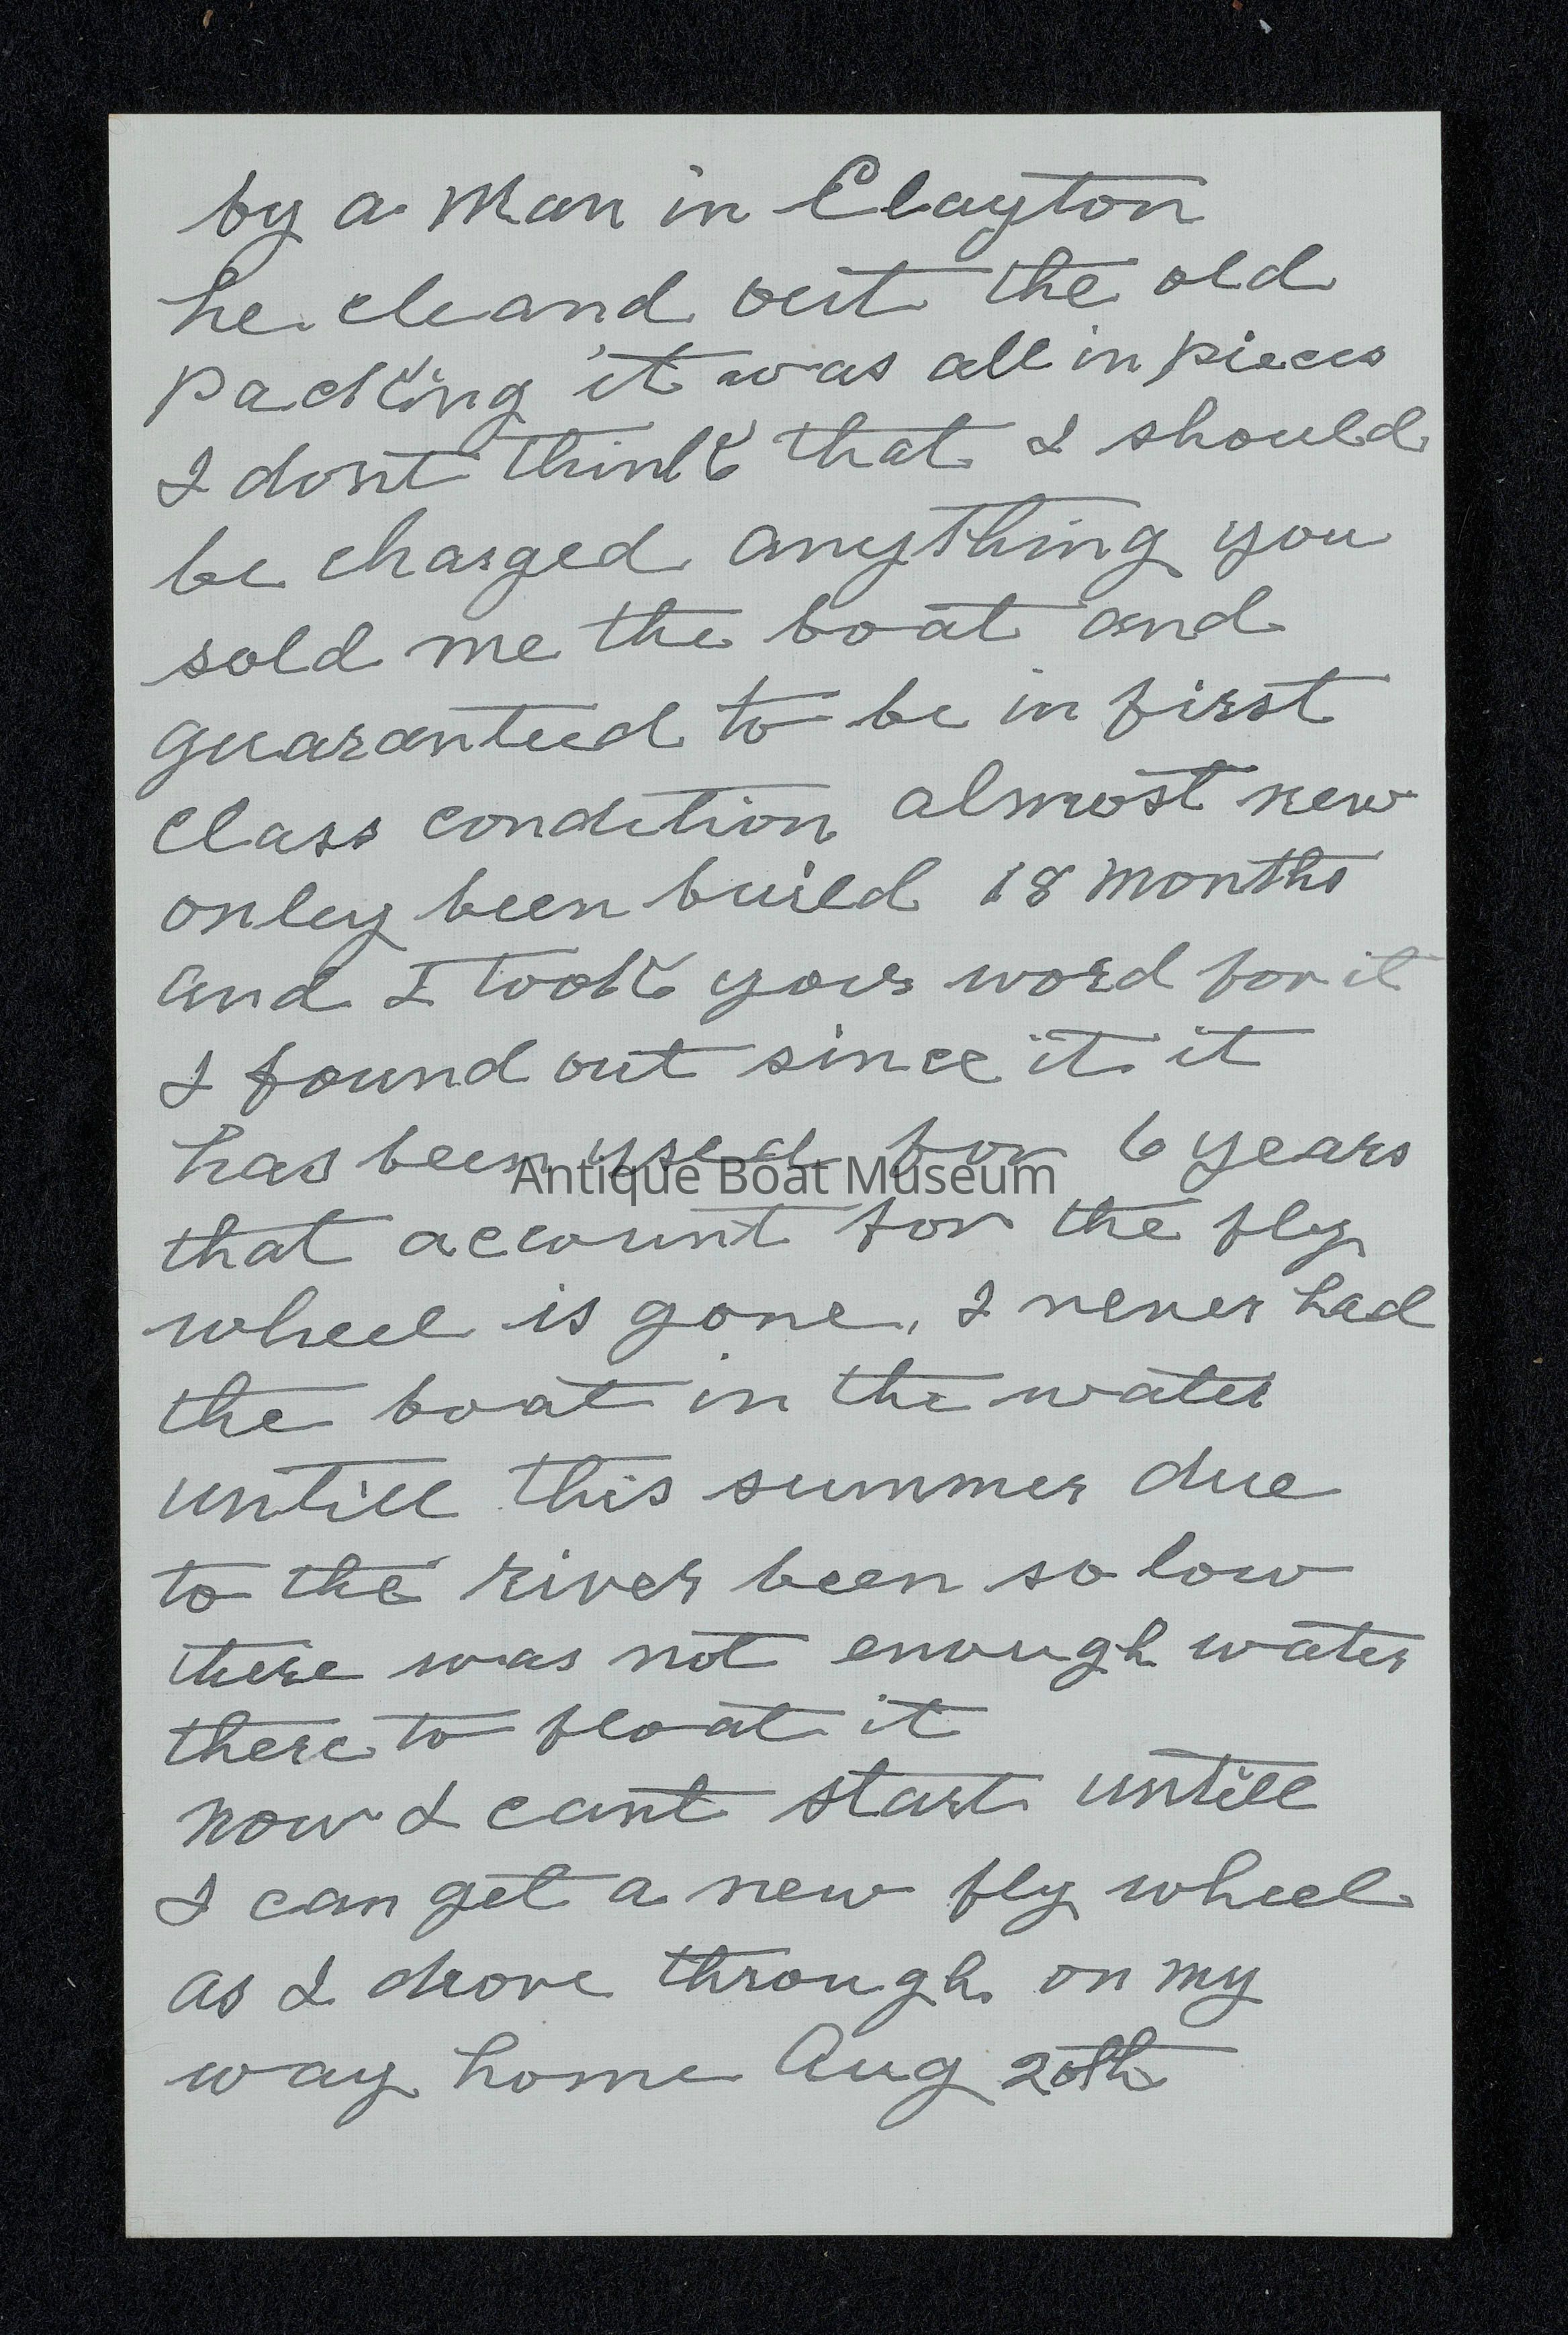 by a Man in Clayton
he cleand out the old
packing it was all in pieces
I dont think that I should
be charged anything you
sold me the boat and
guaranteed to be in first
class condition almost new
only been build 18 months
and I took your word for it
I found out since it it
has been used for 6 years
Antique Boat Museum
that account for the fly
wheel is gone, I never had
the boat in the water
untill this summer due
to the river been so low
there was not enough water
there to float it
now I cant start untill
I can get a new fly wheel
as I drove through on my
way home Aug 20th